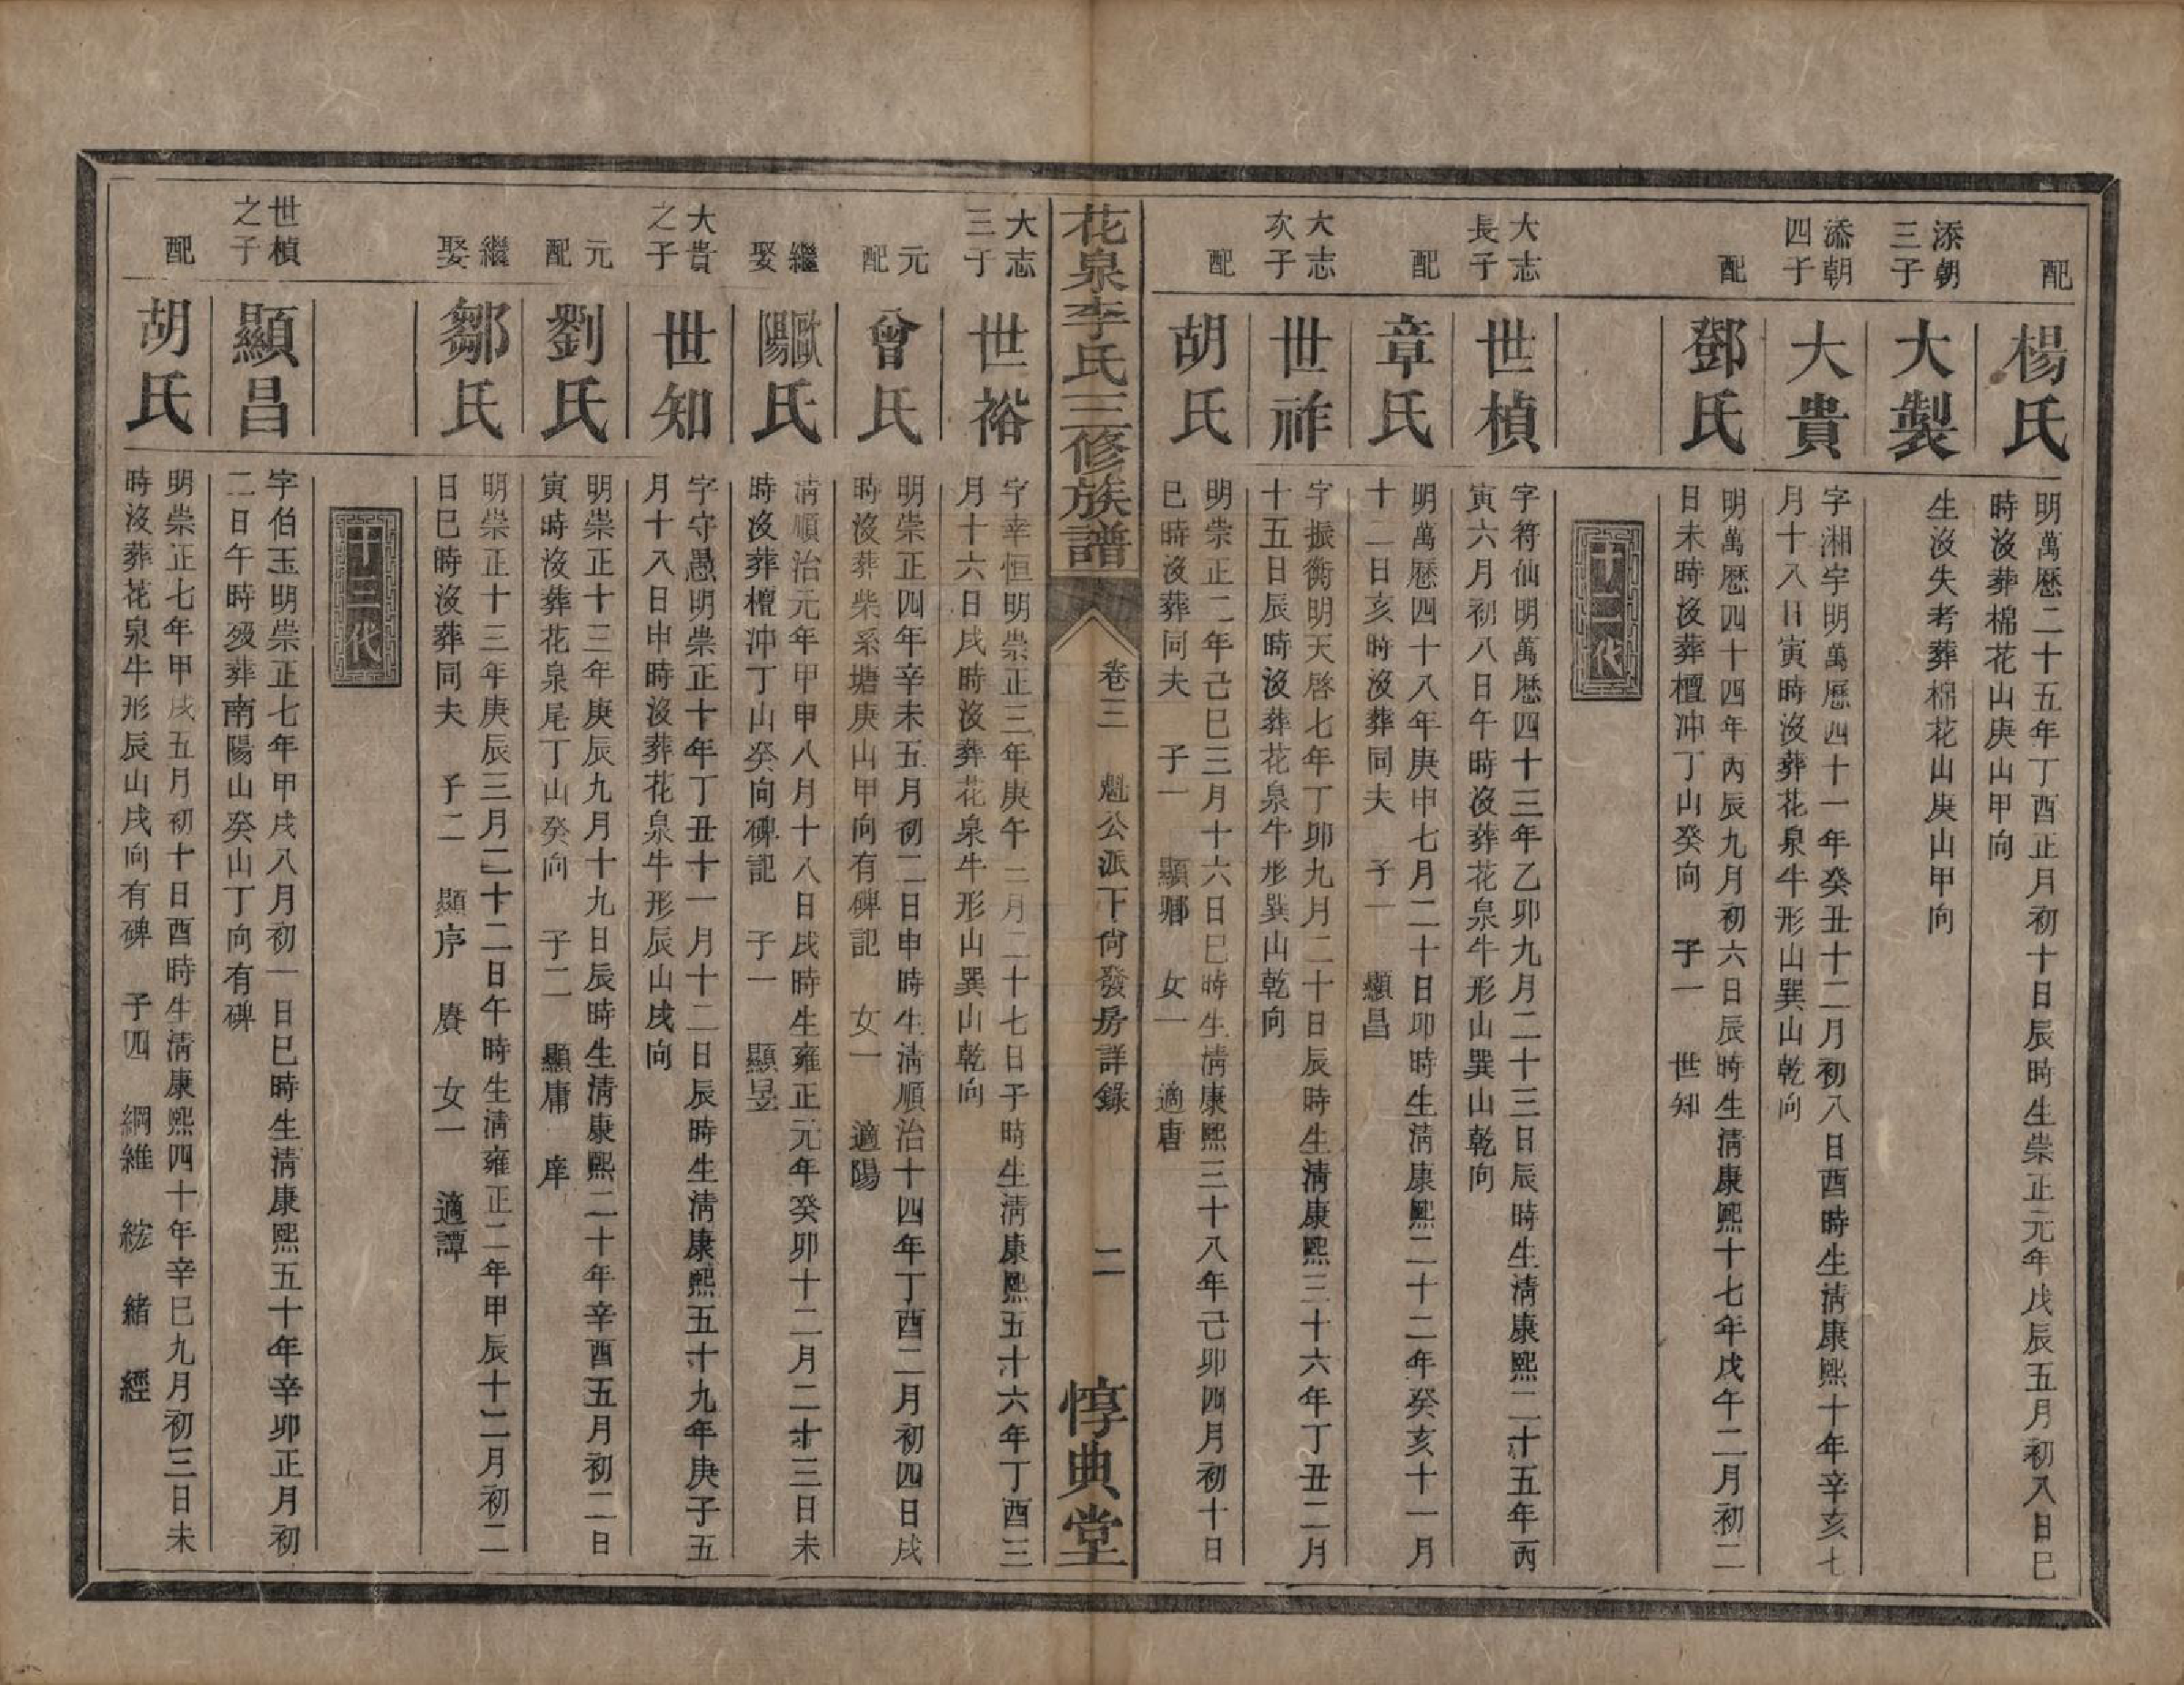 配
楊氏
明萬歷二十五年丁酉正月初十日辰時生崇正元年戊辰五月初八日巳
時沒葬棉花山庚山甲向
添朝
三子
大製
生沒失考葬棉花山庚山甲向
添朝
四子
大貴
字湘宇明萬歷四十一年癸丑十二月初八日酉時生淸康熙十年辛亥七
月十八日寅時沒葬花泉牛形山巽山乾向
配
鄧氏
明萬歷四十四年丙辰九月初六日辰時生淸康熙十七年戊午二月初二
日未時沒葬檀沖丁山癸向 子一 世知
十二代
大志
長子
世楨
字符仙明萬歷四十三年乙卯九月二十三日辰時生淸康熙二十五年丙
寅六月初八日午時沒葬花泉牛形山巽山乾向
配
章氏
明萬歷四十八年庚申七月二十日卯時生淸康熙二十二年癸亥十一月
十二日亥時沒葬同夫 子一 顯昌
大志
次子
世祚
字振衡明天啓七年丁卯九月二十日辰時生淸康熙三十六年丁丑二月
十五日辰時沒葬花泉牛形巽山乾向
配
胡氏
明崇正二年己巳三月十六日巳時生淸康熙三十八年己卯四月初十日
巳時沒葬同夫 子一 顯郷 女一 適唐
花泉李氏三修族譜
卷三 魁公派下尙發房詳錄
二
惇典堂
大志
三子
世裕
字幸恒明崇正三年庚午二月二十七日子時生淸康熙五十六年丁酉三
月十六日戌時沒葬花泉牛形山巽山乾向
元
配
曾氏
明崇正四年辛未五月初二日申時生淸順治十四年丁酉二月初四日戌
時沒葬柴系塘庚山甲向有碑記 女一 適陽
繼
娶
歐陽氏
淸順治元年甲申八月十八日戌時生雍正元年癸卯十二月二十三日未
時沒葬檀沖丁山癸向碑記 子一 顯昱
大貴
之子
世知
字守愚明崇正十年丁丑十一月十二日辰時生淸康熙五十九年庚子五
月十八日申時沒葬花泉牛形辰山戌向
元
配
劉氏
明崇正十三年庚辰九月十九日辰時生淸康熙二十年辛酉五月初二日
寅時沒葬花泉尾丁山癸向 子二 顯庸 庠
繼
娶
鄒氏
明崇正十三年庚辰三月二十二日午時生淸雍正二年甲辰十二月初二
日巳時沒葬同夫 子二 顯序 賡 女一 適譚
十三代
世楨
之子
顯昌
字伯玉明崇正七年甲戌八月初一日巳時生淸康熙五十年辛卯正月初
二日午時歿葬南陽山癸山丁向有碑
配
胡氏
明崇正七年甲戌五月初十日酉時生淸康熙四十年辛巳九月初三日未
時沒葬花泉牛形辰山戌向有碑 子四 綱維 紘 緒 經